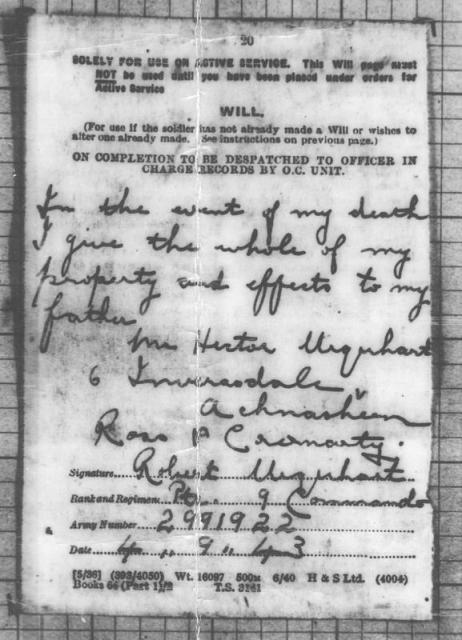 20
SOLELY FOR USE ON ACTIVE SERVICE. This Will page must
NOT be used until you have been placed under orders for
Active Service
WILL.
(For use if the soldier has not already made a Will or wishes to
alter one already made. See instructions on previous page.)
ON COMPLETION TO BE DESPATCHED TO OFFICER IN
CHARGE RECORDS BY O.C. UNIT.
In the event of my death
I give the whole of my
property and effects to my
father
Mr Hector Urquhart
6 Inverasdale
Achnasheen
Ross & Cromarty.
Signature Robert Urquhart
Rank and Regiment Pte. 9 Commando
Army Number 2991922
Date 9
[5/36] (393/4050) Wt. 16097 500M 6/40 H & S Ltd. (4004)
Books 64 (Part 1)/2 T.S. 3141